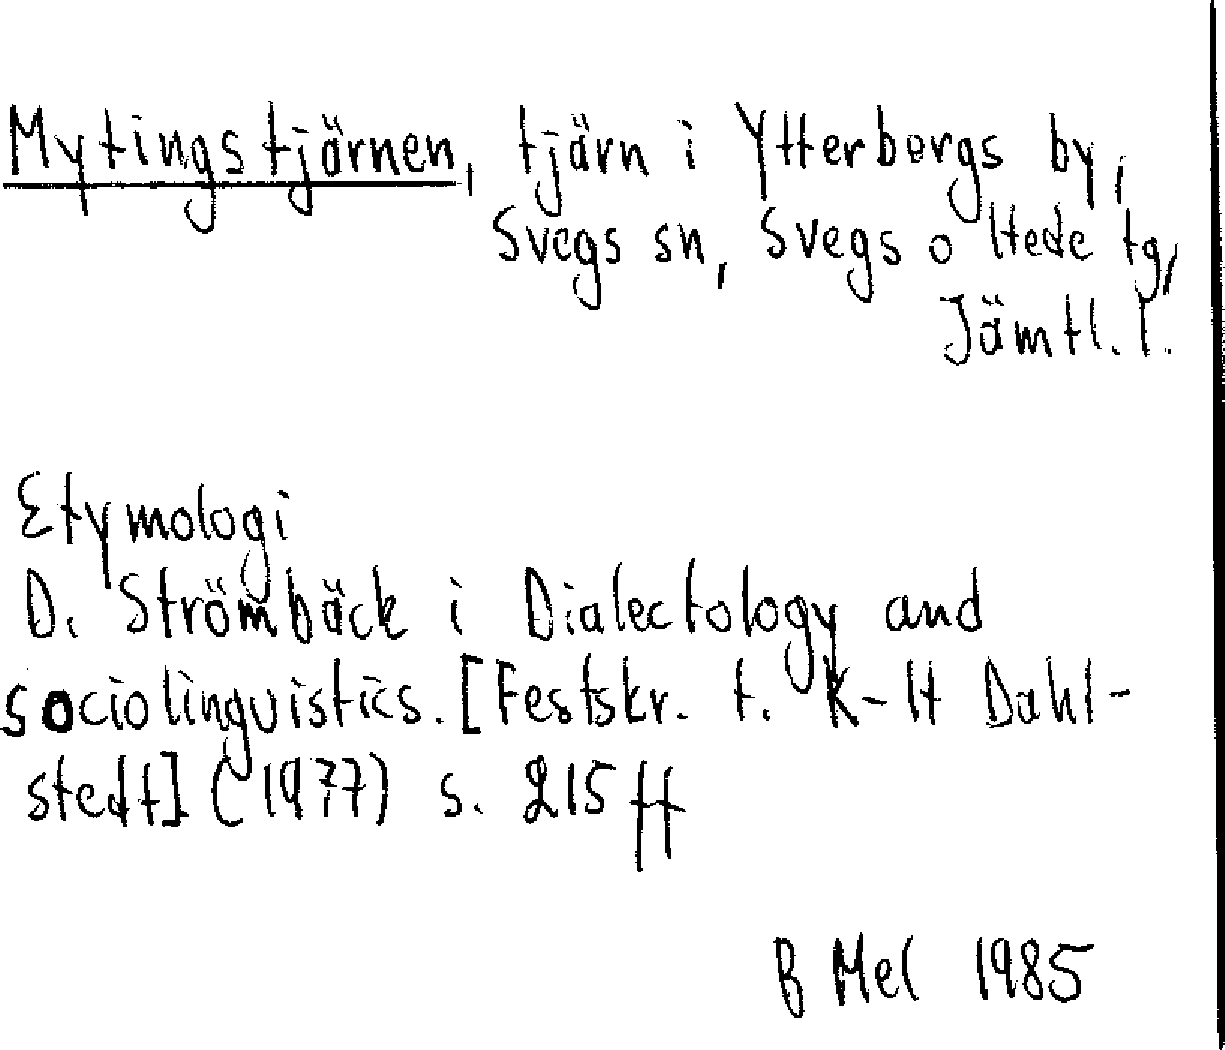 Mytingstjärnen, tjärn i Ytterbergs by,
Svegs sn, Svegs o Hede tg,
Jämtl. l.
Etymologi
D. Strömbäck i Dialectology and
sociolinguistics. [Festskr. t. K-H Dahl-
stedt] (1977) s. 215 ff
B Mel 1985